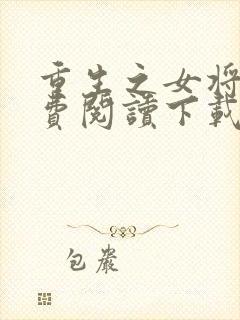 重生之女将
费閱讀下載
包嚴